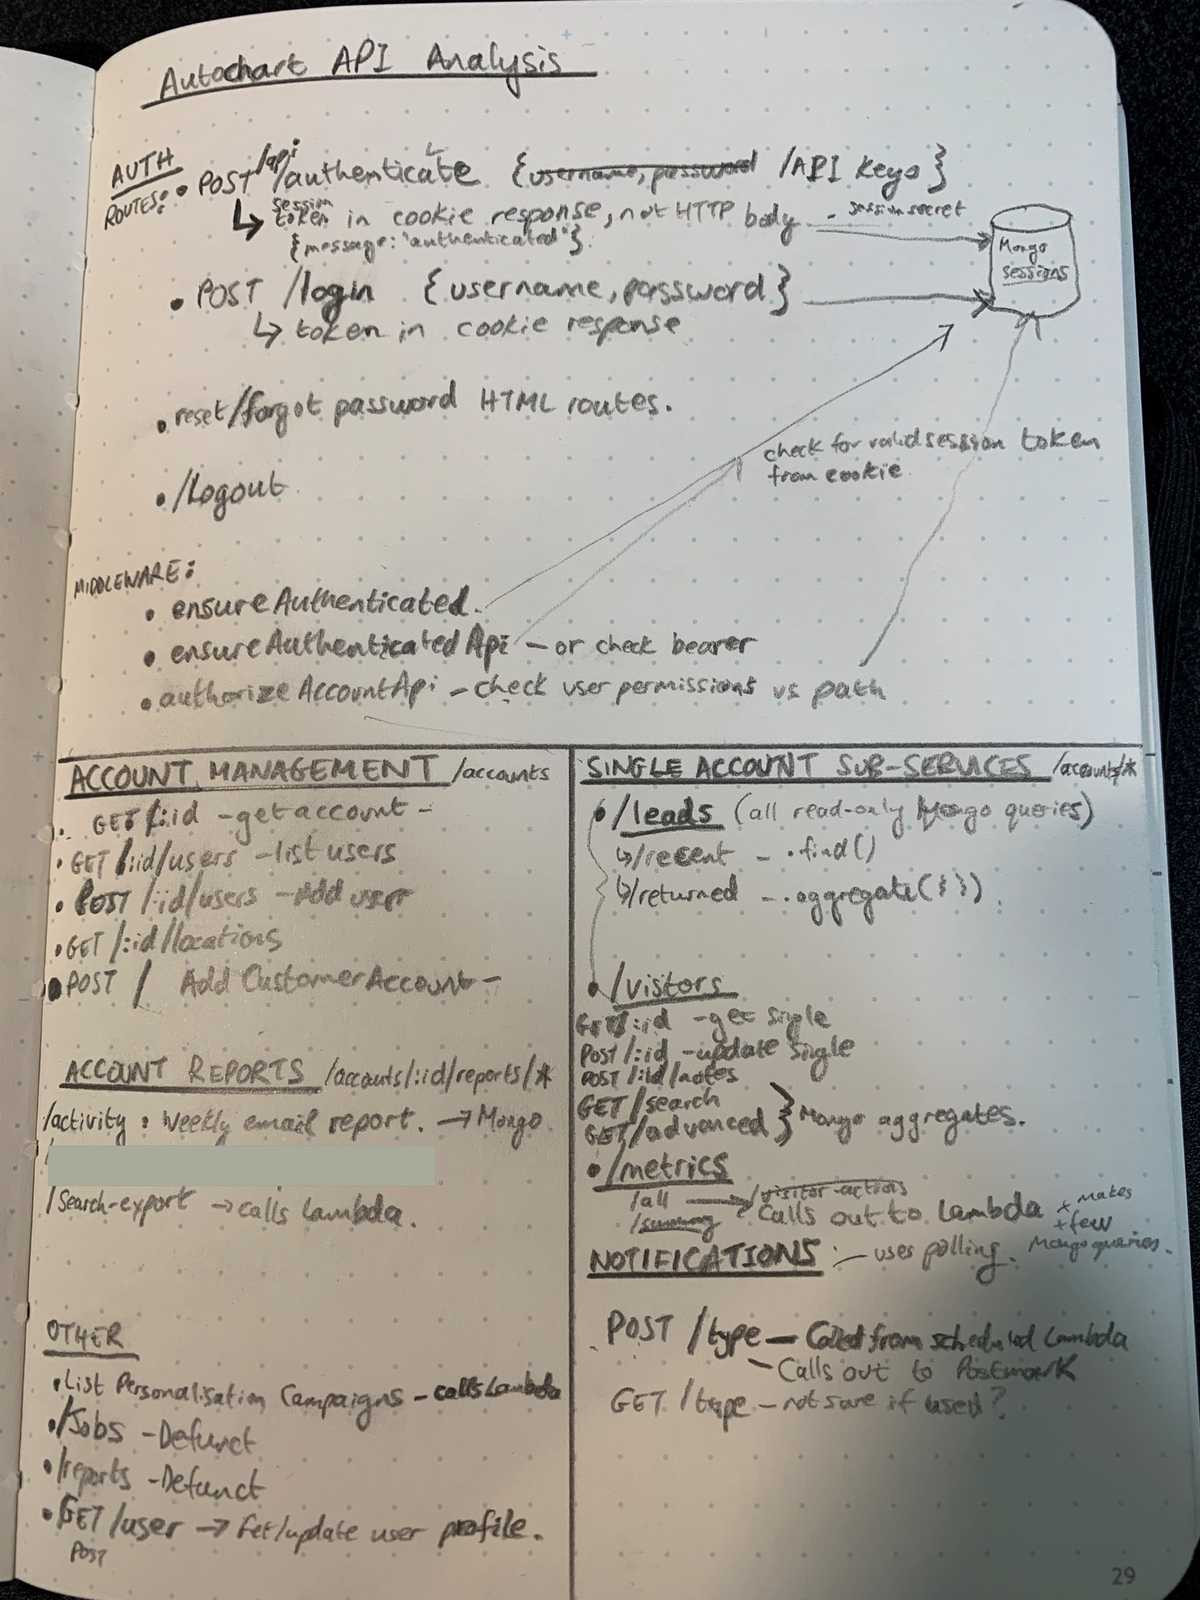 Autochart API Analysis
AUTH
ROUTES:
• POST /api/authenticate {username, password /API Keys}
↳ session token in cookie response, not HTTP body - session secret
{message: "authenticated"}.
Mongo
sessions
• POST /login {username, password}
↳ token in cookie response
• reset/forgot password HTML routes.
check for valid session token
from cookie
• /Logout
MIDDLEWARE:
• ensureAuthenticated.
• ensureAuthenticatedApi - or check bearer
• authorizeAccountApi - check user permissions vs path
ACCOUNT MANAGEMENT /accounts
• GET /:id - get account -
• GET /:id/users - list users
• POST /:id/users - Add user
• GET /:id/locations
• POST / Add CustomerAccount -
ACCOUNT REPORTS /accouts/:id/reports/*
/activity : Weekly email report. → Mongo
/
/Search-export → calls Lambda.
OTHER
• List Personalisation Campaigns - calls Lambda
• /Jobs - Defunct
• /reports - Defunct
• GET /user → Fet/update user profile.
POST
SINGLE ACCOUNT SUB-SERVICES /accounts/*
• /leads (all read-only Mongo queries)
↳ /recent - .find()
↳ /returned - .aggregate({})
• /visitors
GET /:id - get single
POST /:id - update single
POST /:id/notes
GET /search
GET /advanced } Mongo aggregates.
• /metrics
/all → /visitor-actions
/summary calls out to Lambda + makes
+ few
Mongo queries.
NOTIFICATIONS - uses polling.
POST /type - Called from scheduled Lambda
- Calls out to Postmark
GET /type - not sure if used?
29